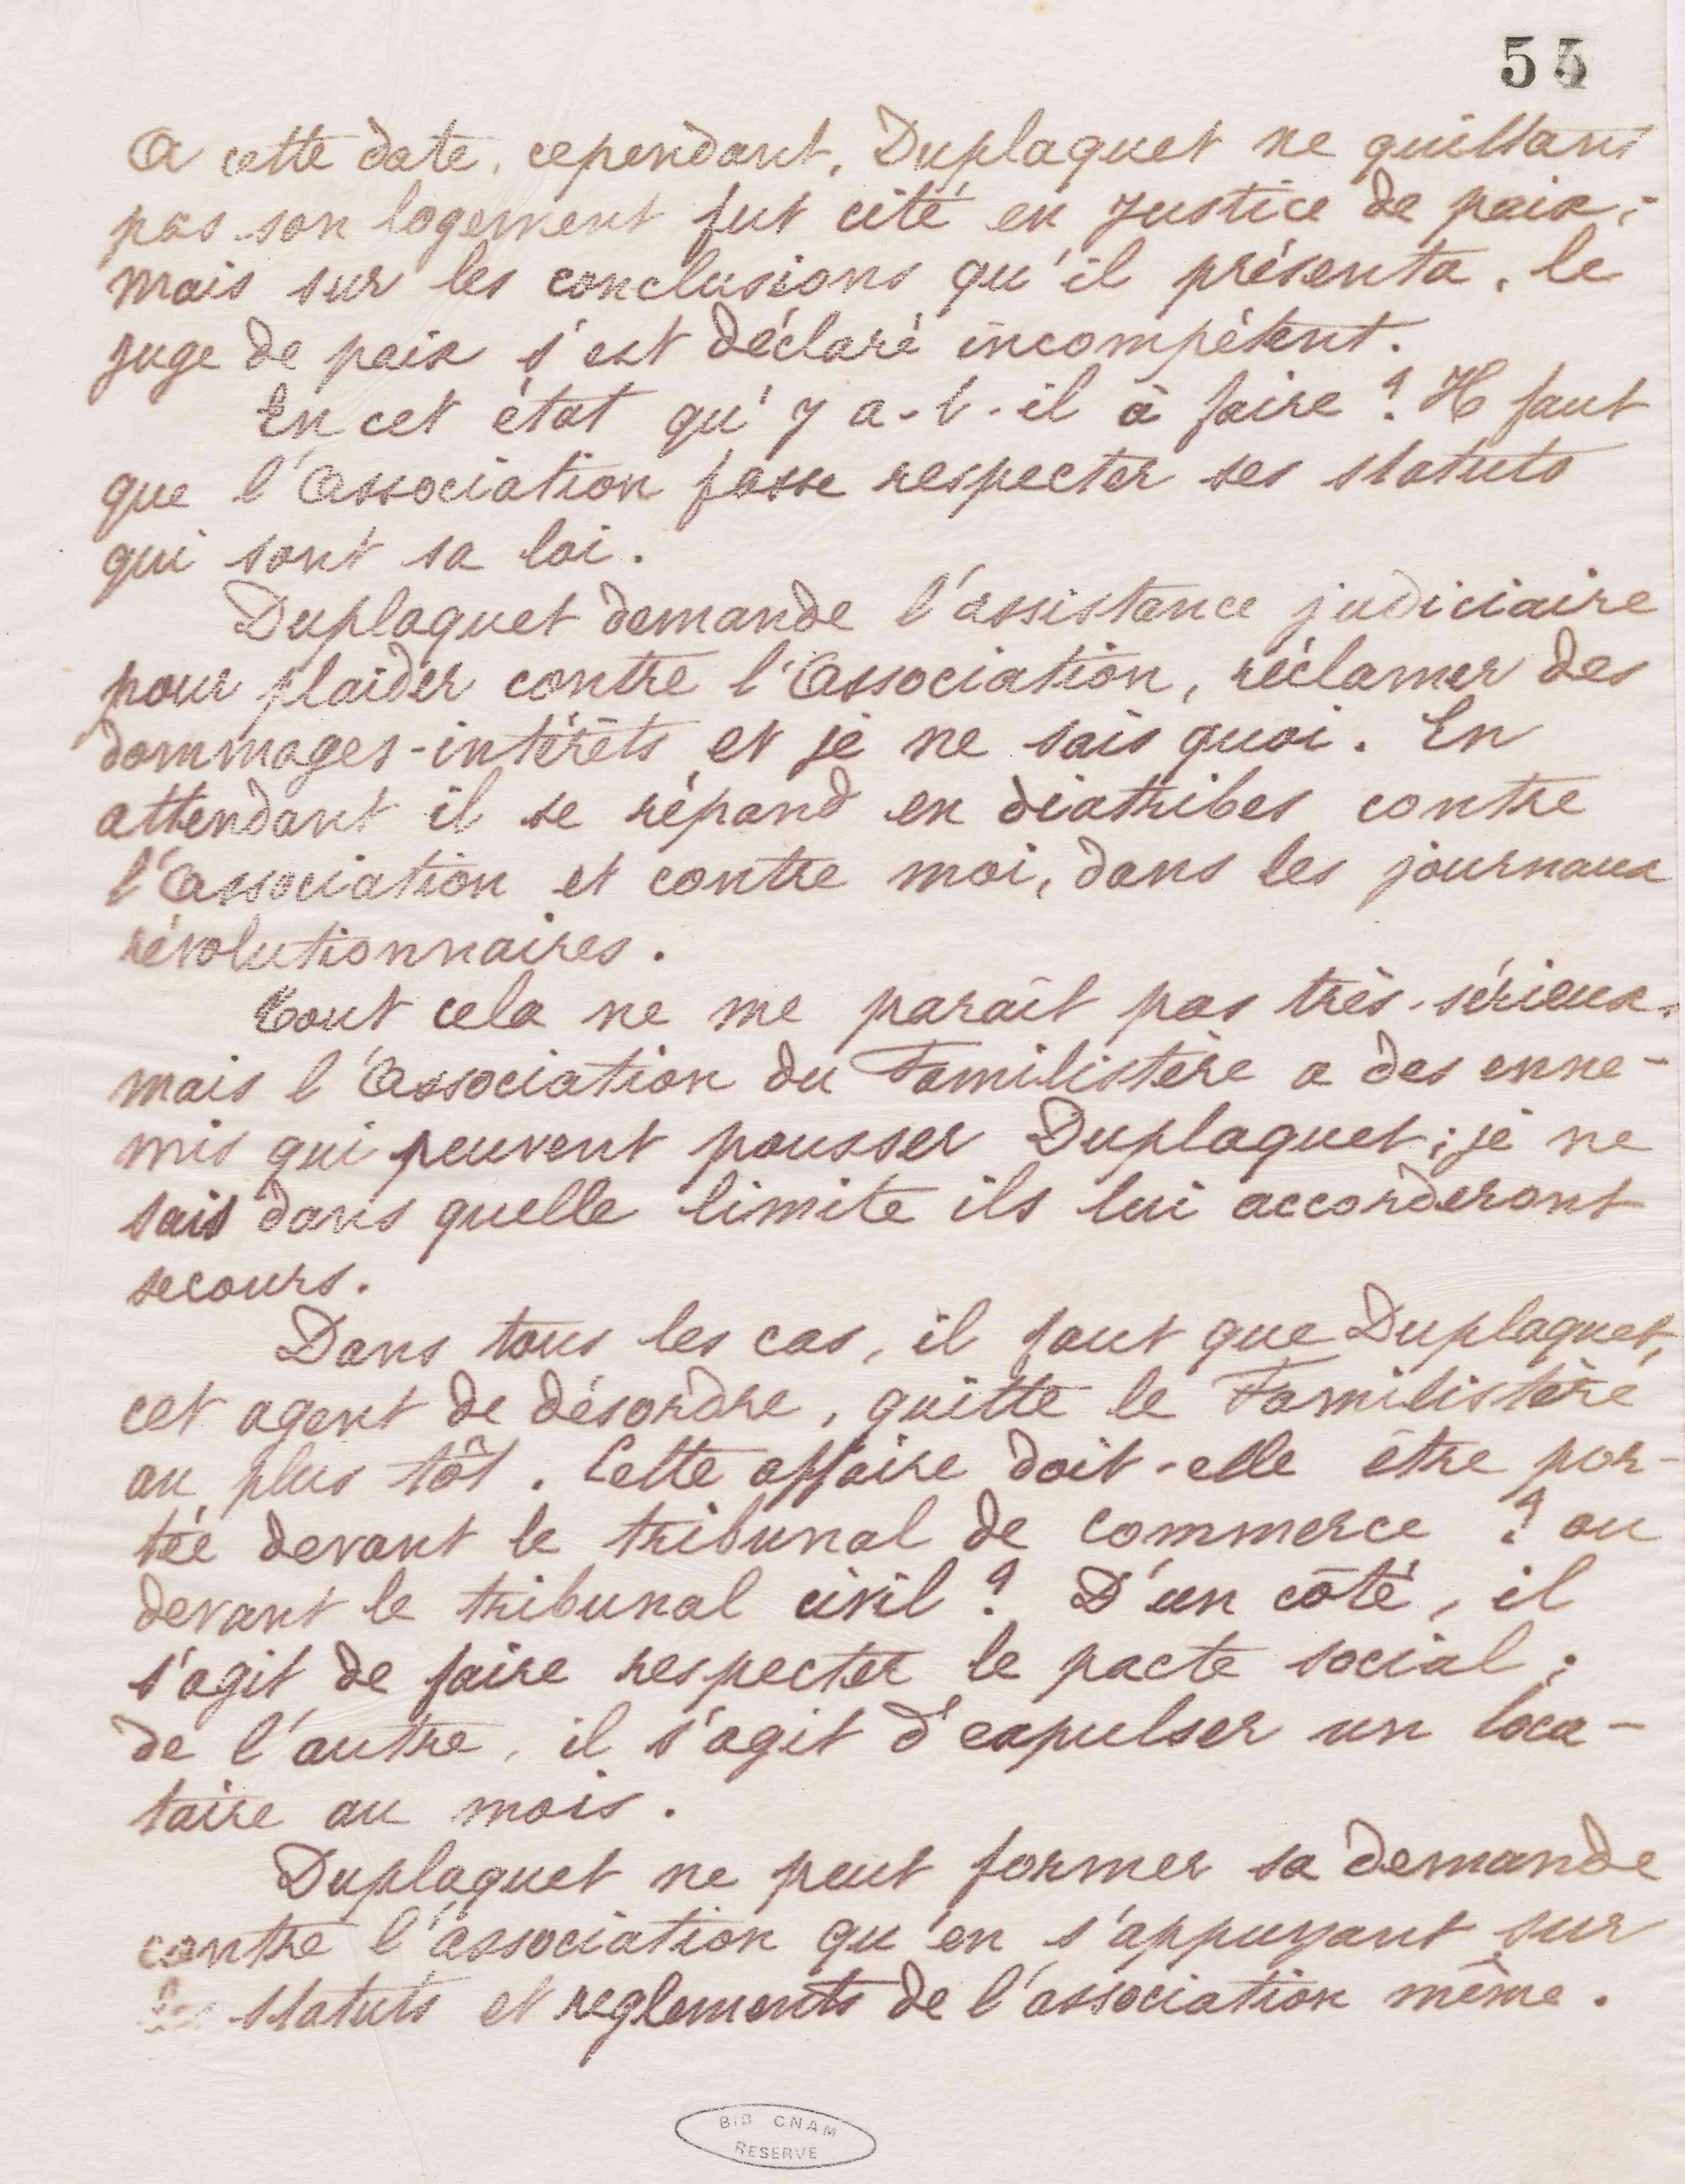 55
A cette date, cependant, Duplaquet ne quittant
pas son logement fut cité en Justice de paix ;
mais sur les conclusions qu'il présenta, le
juge de paix s'est déclaré incompétent.
En cet état qu'y a-t-il à faire ? Il faut
que l'Association fasse respecter ses statuts
qui sont sa loi.
Duplaquet demande l'assistance judiciaire
pour plaider contre l'Association, réclamer des
dommages-intérêts et je ne sais quoi. En
attendant il se répand en diatribes contre
l'Association et contre moi, dans les journaux
révolutionnaires.
Tout cela ne me paraît pas très-sérieux,
mais l'Association du Familistère a des enne-
mis qui peuvent pousser Duplaquet ; je ne
sais dans quelle limite ils lui accorderont
secours.
Dans tous les cas, il faut que Duplaquet,
cet agent de désordre, quitte le Familistère
au plus tôt. Cette affaire doit-elle être por-
tée devant le tribunal de commerce ? ou
devant le tribunal civil ? D'un côté, il
s'agit de faire respecter le pacte social ;
de l'autre, il s'agit d'expulser un loca-
taire au mois.
Duplaquet ne peut former sa demande
contre l'association qu'en s'appuyant sur
les statuts et reglements de l'association même.
BIB CNAM
RESERVE